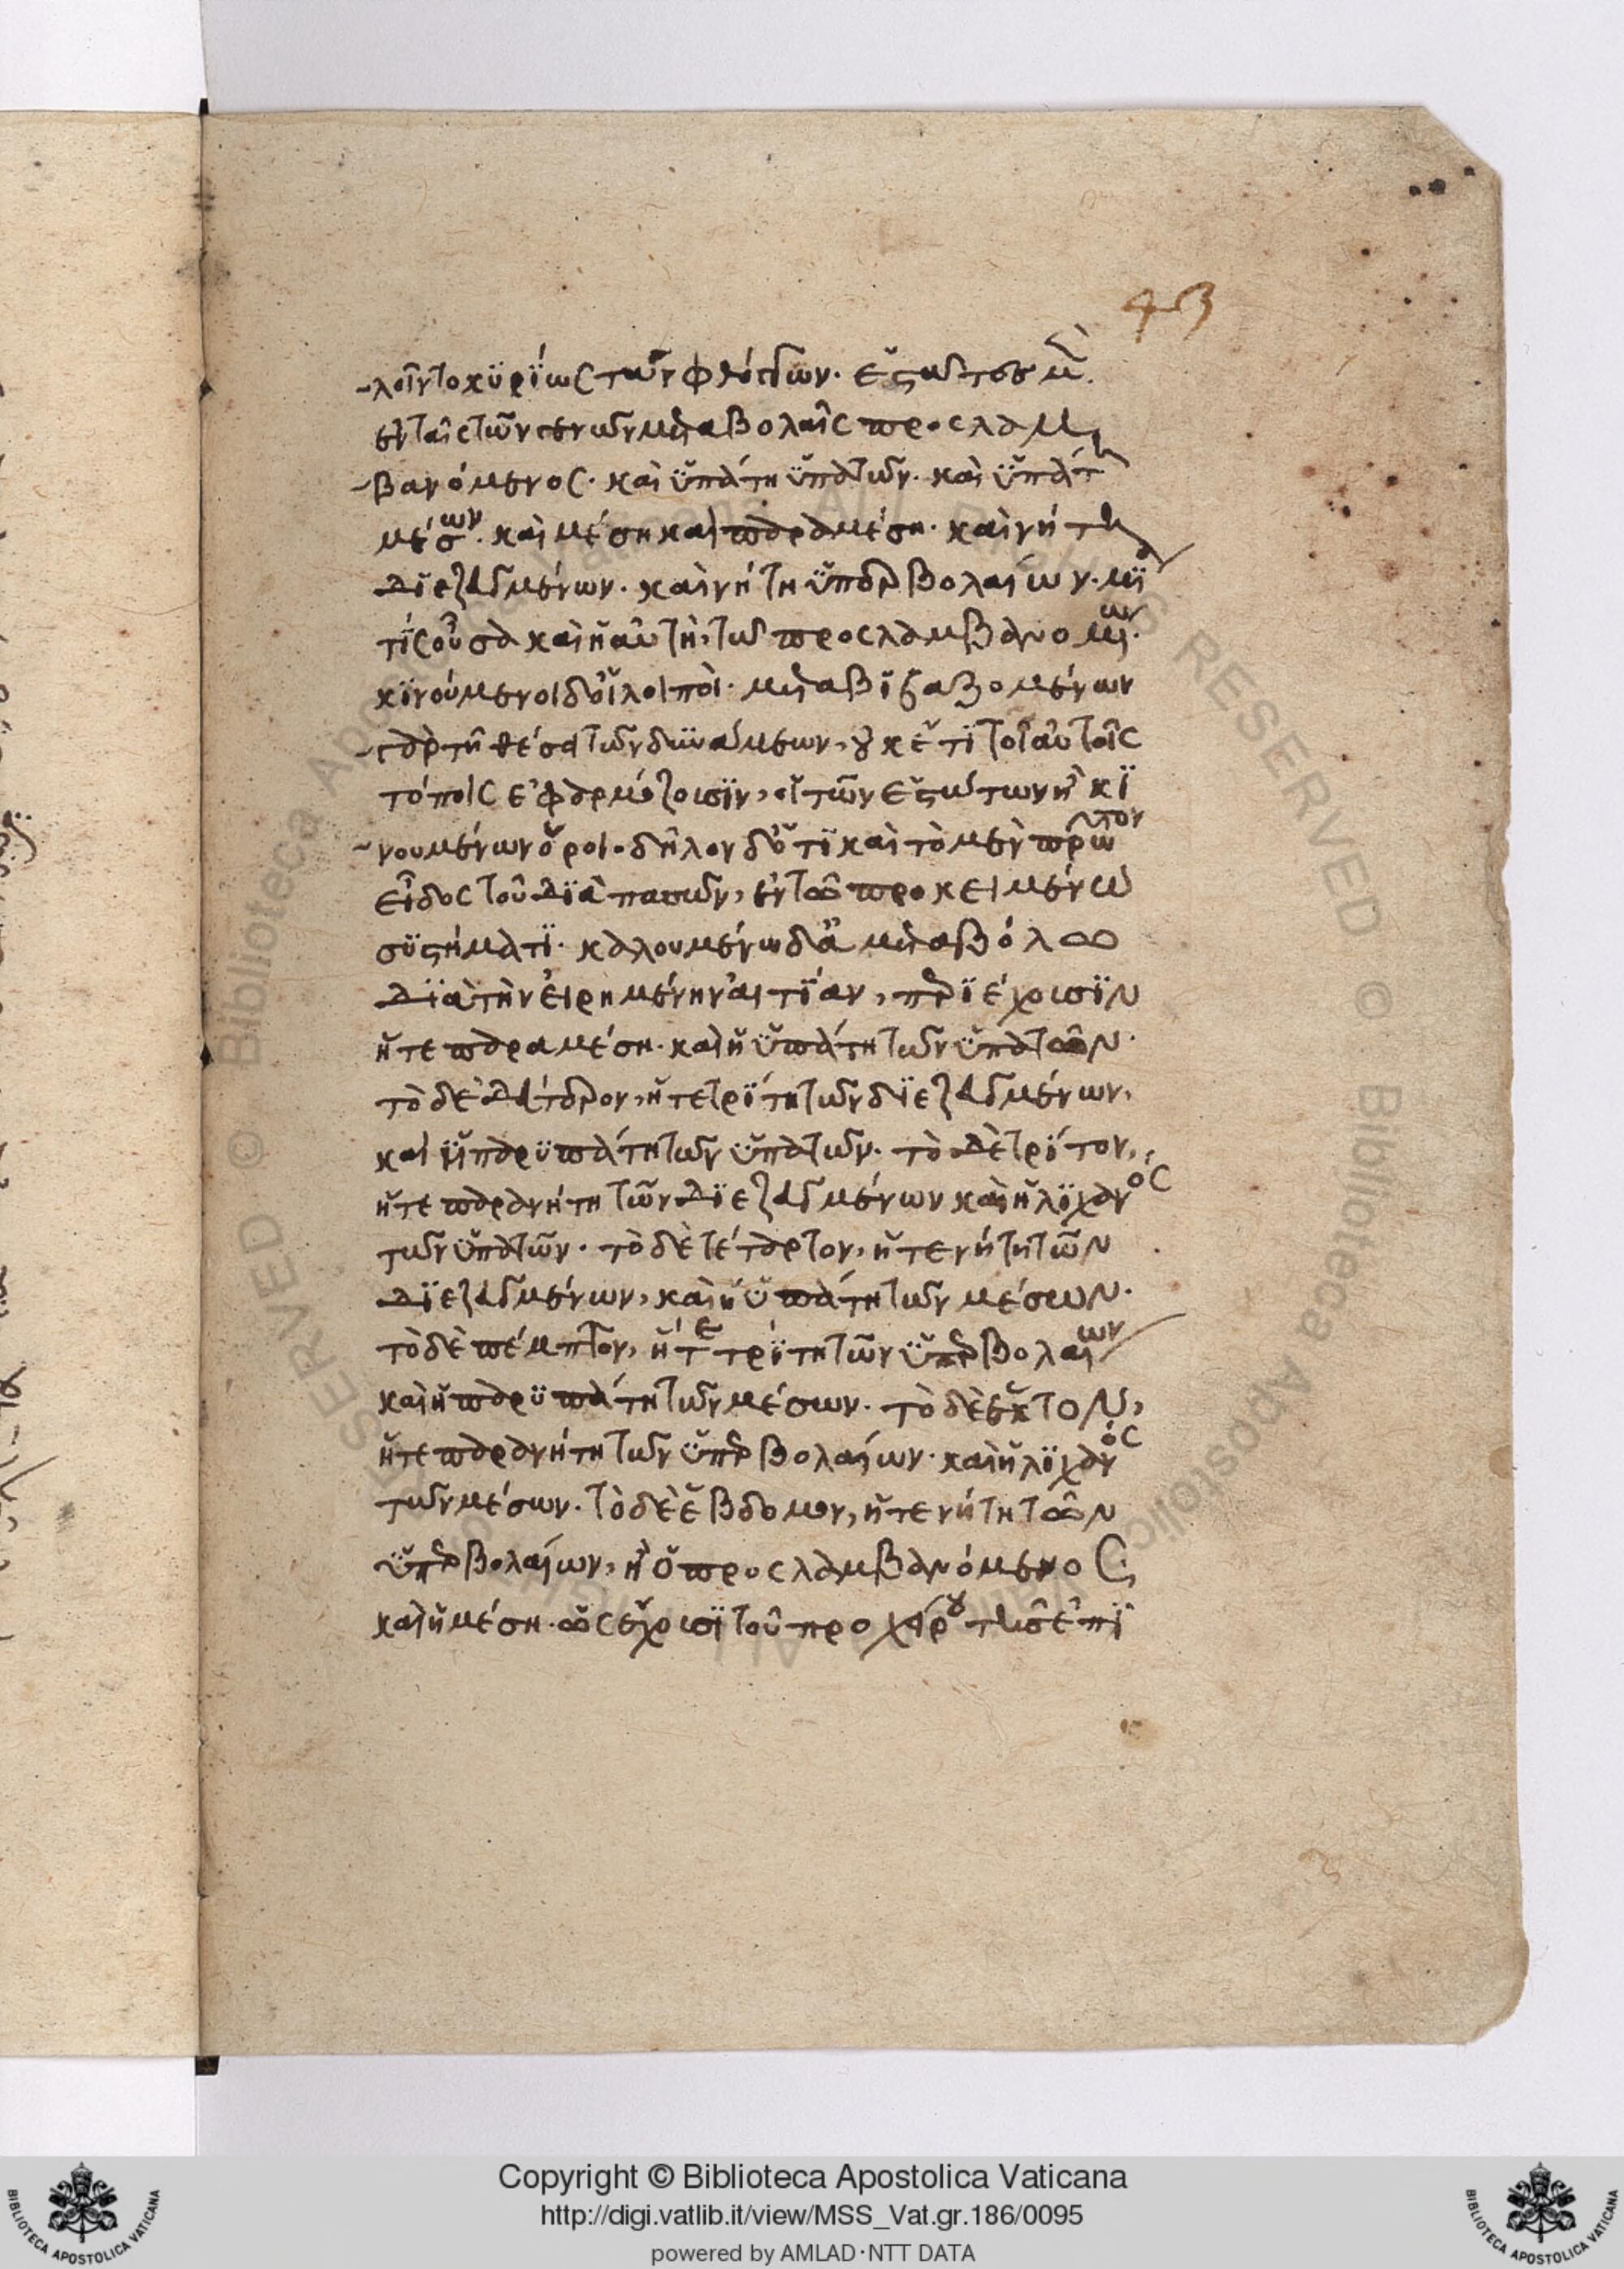 43
-λοῖντο κϋρΐως τῶν φθόγγων. ἑστῶτες μ(ὲν)
ἐν ταῖς τῶν γενῶν μεταβολαῖς προσλαμ
-βανόμενος. καὶ ὑπάτη ὑπάτων. καὶ ὑπάτ(η)
μέσων. καὶ μέση καὶ παραμέση. καὶ νήτη
διεζευγμένων. καὶ νήτη ὑπερβολαίων. μία
τίς οὖσα καὶ ἡ αὐτὴ, τῶ προσλαμβανομένω.
κινούμενοι δὲ οἱ λοιποὶ. μεταβιβαζομένων
γὰρ τῆ θέσει τῶν δυνάμεων, οὐκ ἔτι τοῖς αὐτοῖς
τόποις ἐφαρμόζουσιν, οἱ τῶν ἑστώτων ἢ κι
-νουμένων ὅροι. δῆλον δὲ ὅτι καὶ τὸ μὲν πρῶτον
εἶδος τοῦ διὰ πασῶν, ἐν τῶ προκειμένω
συστήματι. καλουμένω δὲ ἀμεταβόλω
διὰ τὴν εἰρημένην αἰτίαν, περιέχουσιν
ἥ τε παραμέση. καὶ ἡ ὑπάτη τῶν ὑπάτων.
τὸ δὲ δεύτερον, ἥ τε τρίτη τῶν διεζευγμένων,
καὶ ἡ παρυπάτη τῶν ὑπάτων. τὸ δὲ τρίτον,
ἥ τε παρανήτη τῶν διεζευγμένων καὶ ἡ λίχανος
τῶν ὑπάτων. τὸ δὲ τέταρτον, ἥ τε νήτη τῶν
διεζευγμένων, καὶ ἡ ὑπάτη τῶν μέσων.
τὸ δὲ πέμπτον, ἥ τε τρίτη τῶν ὑπερβολαίων
καὶ ἡ παρυπάτη τῶν μέσων. τὸ δὲ ἕκτον,
ἥ τε παρανήτη τῶν ὑπερβολαίων. καὶ ἡ λίχανος
τῶν μέσων. τὸ δὲ ἕβδομον, ἥ τε νήτη τῶν
ὑπερβολαίων, ἢ ὁ προσλαμβανόμενος,
καὶ ἡ μέση. ὡς ἔχουσι τοῦ προχείρου τῆς ἐπι
Copyright © Biblioteca Apostolica Vaticana
http://digi.vatlib.it/view/MSS_Vat.gr.186/0095
powered by AMLAD·NTT DATA